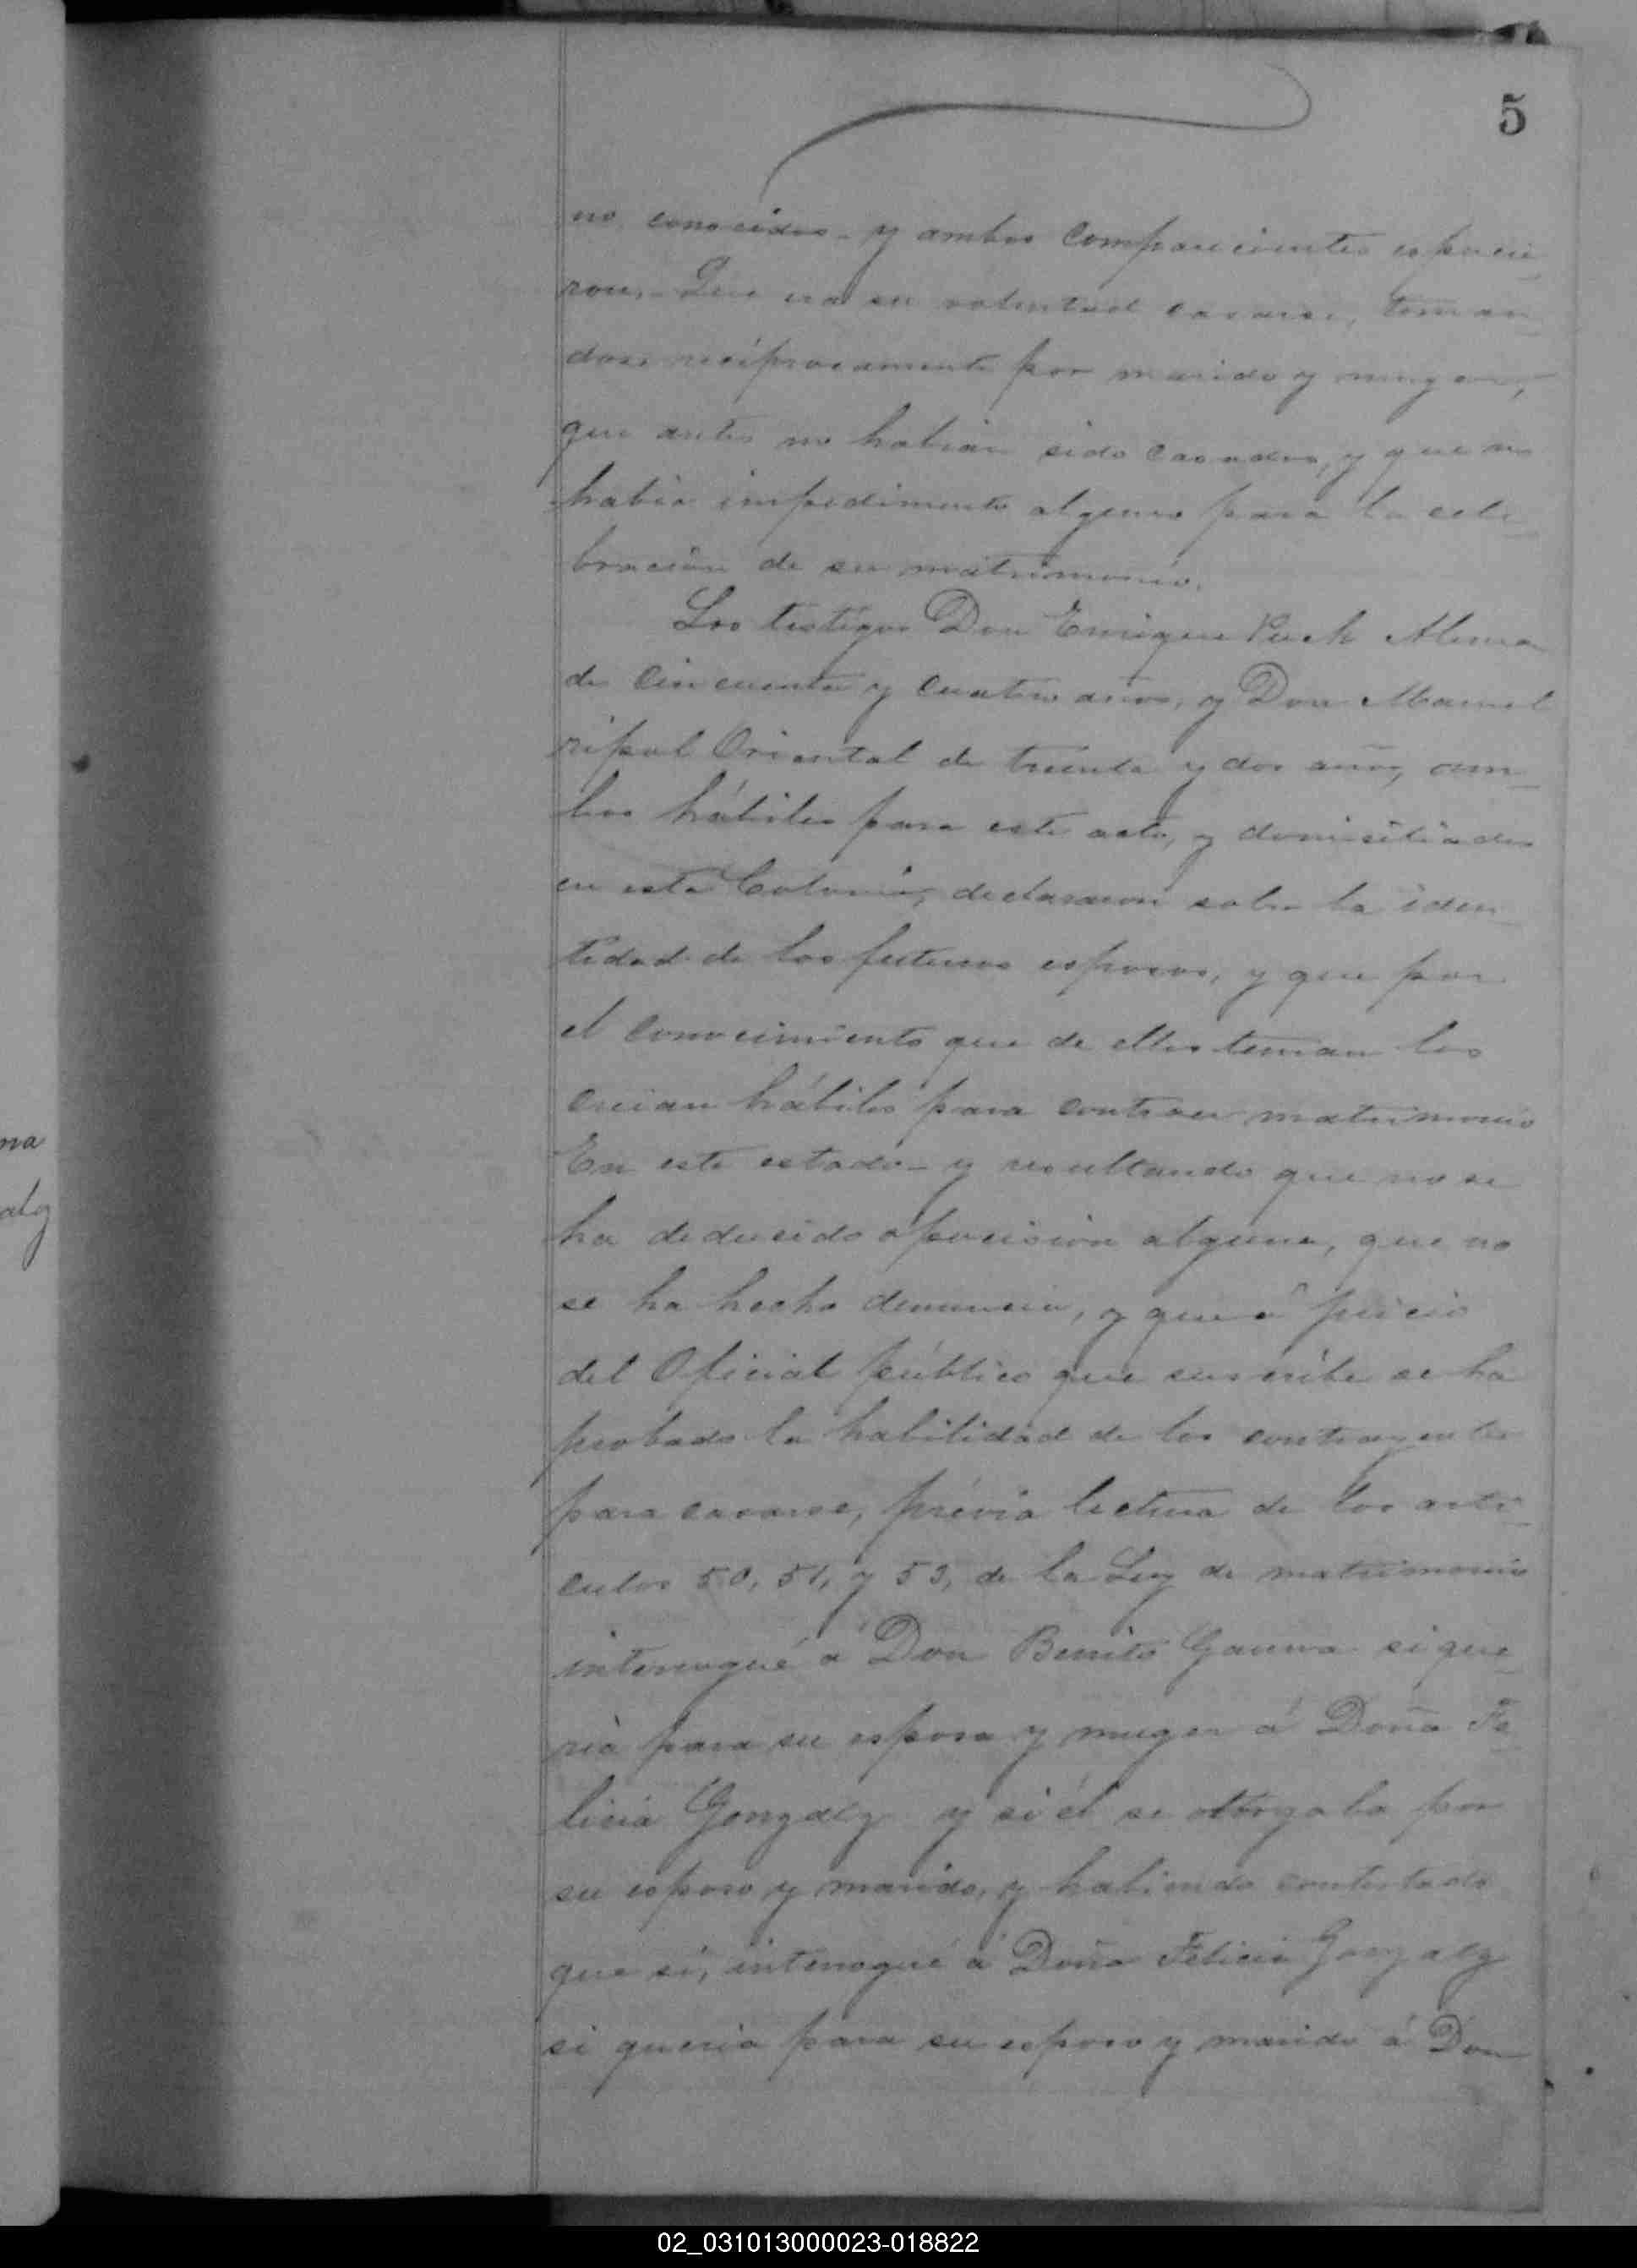 5
no conocidos - y ambos comparecientes expucie
ron,- Que era su voluntad casarse, toman
dose reciprocamente por marido y muger,
que antes no habian sido casados, y que no
habia impedimento alguno para la cele
bracion de su matrimonio.
Los testigos Don Enrique Puch Aleman
de cincuenta y cuatro años, y Don Manuel
ripol Oriental de treinta y dos años, am
bos hábiles para este acto, y domiciliados
en esta Colonia, declararon sobre la iden
tidad de los futuros esposos, y que por
el conocimiento que de ellos tenian los
creian hábiles para contraer matrimonio
En este estado - y resultando que no se
ha deducido oposicion alguna, que no
se ha hecho denuncia, y que á juicio
del Oficial público que suscribe se ha
probado la habilidad de los contrayentes
para casarse, prévia lectura de los arti
culos 50, 51, y 53, de la Ley de matrimonio
interrogué á Don Benito Gauna si que
ria para su esposa y muger á Doña Fe
licia Gonzalz y si él se otorgaba por
su esposo y marido, y habiendo contestado
que si, interrogué á Doña Felicia Gonzalz
si queria para su esposo y marido á Don
na
alz
02_031013000023-018822